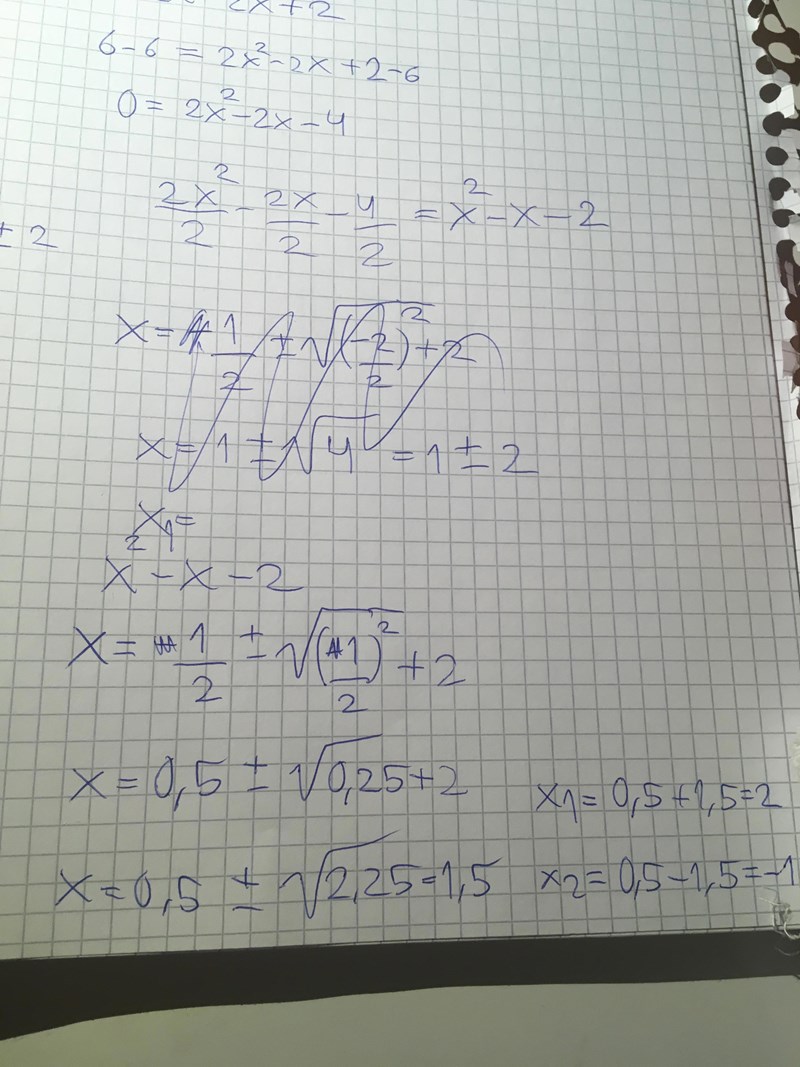 2x+2
6-6 = 2x²-2x+2-6
0 = 2x²-2x-4
± 2
2x²/2 - 2x/2 - 4/2 = x²-x-2
x = 1/2 ± √(-2/2)²+2
x = 1 ± √4 = 1 ± 2
x₁=
x²-x-2
x = 1/2 ± √(1/2)²+2
x = 0,5 ± √0,25+2
x₁= 0,5+1,5=2
x = 0,5 ± √2,25=1,5
x₂= 0,5-1,5=-1